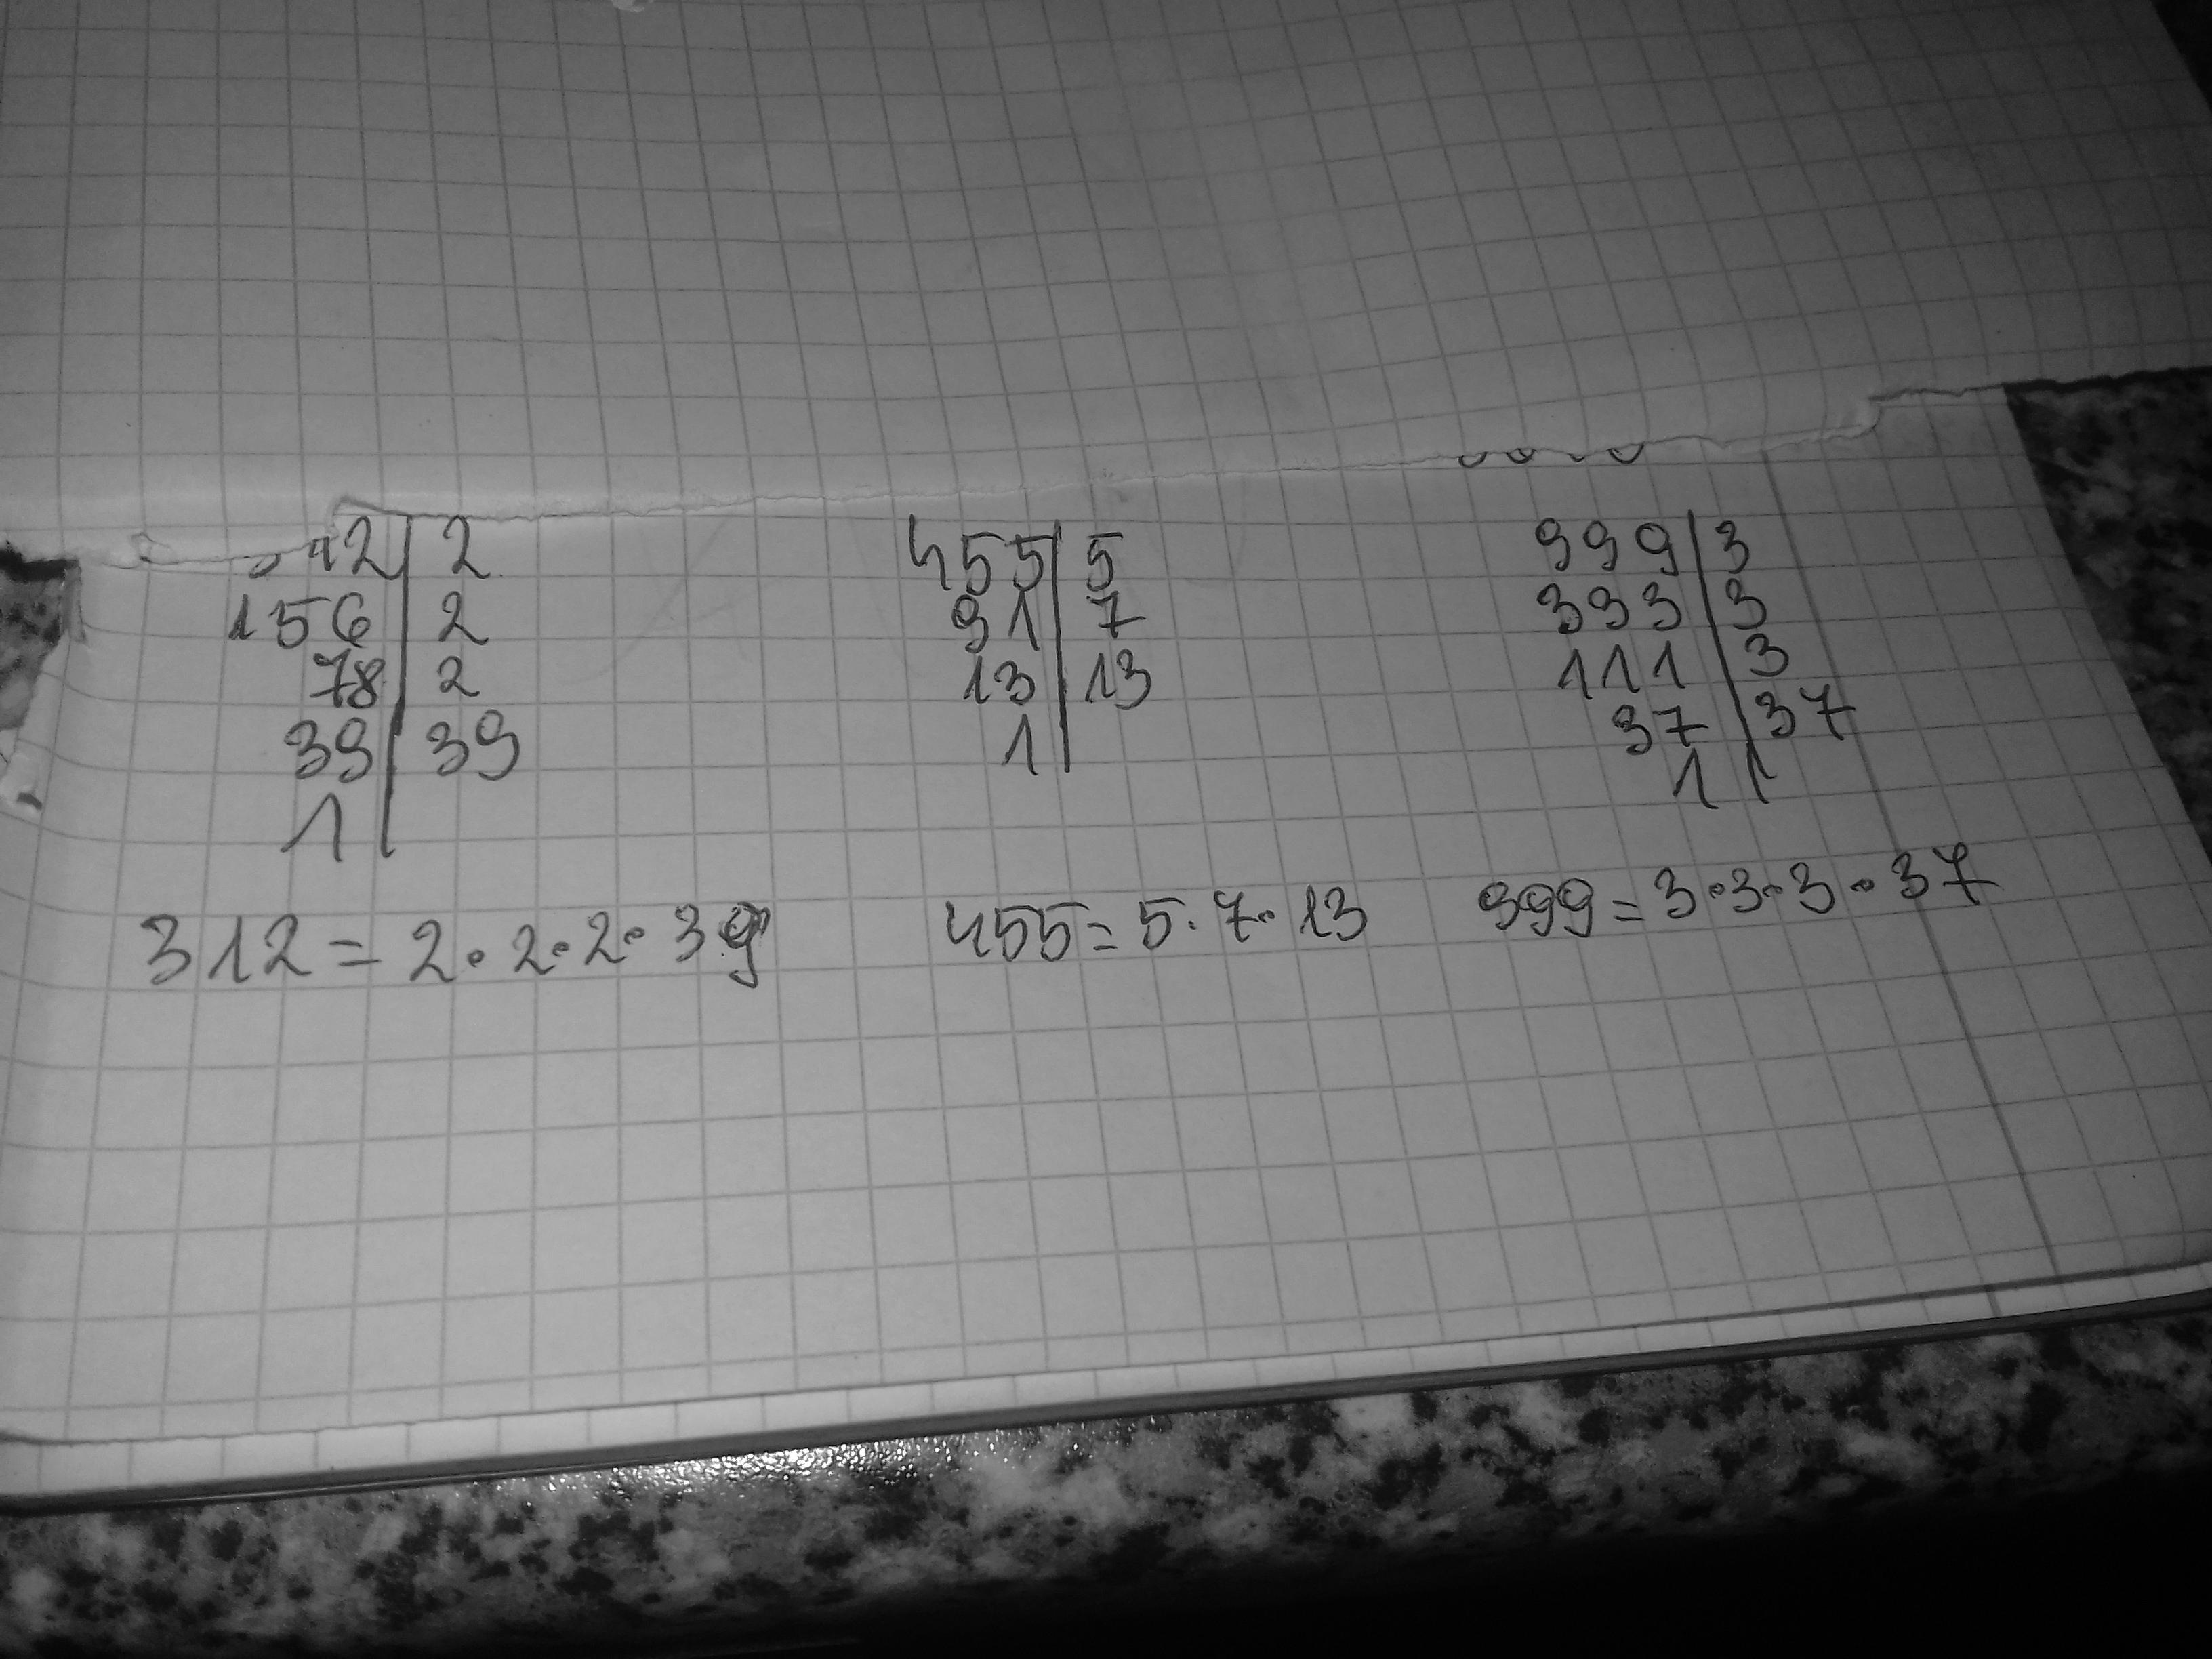 12 | 2
156 | 2
78 | 2
39 | 39
1 |
312 = 2 · 2 · 2 · 39
455 | 5
91 | 7
13 | 13
1 |
455 = 5 · 7 · 13
999 | 3
333 | 3
111 | 3
37 | 37
1 |
999 = 3 · 3 · 3 · 37